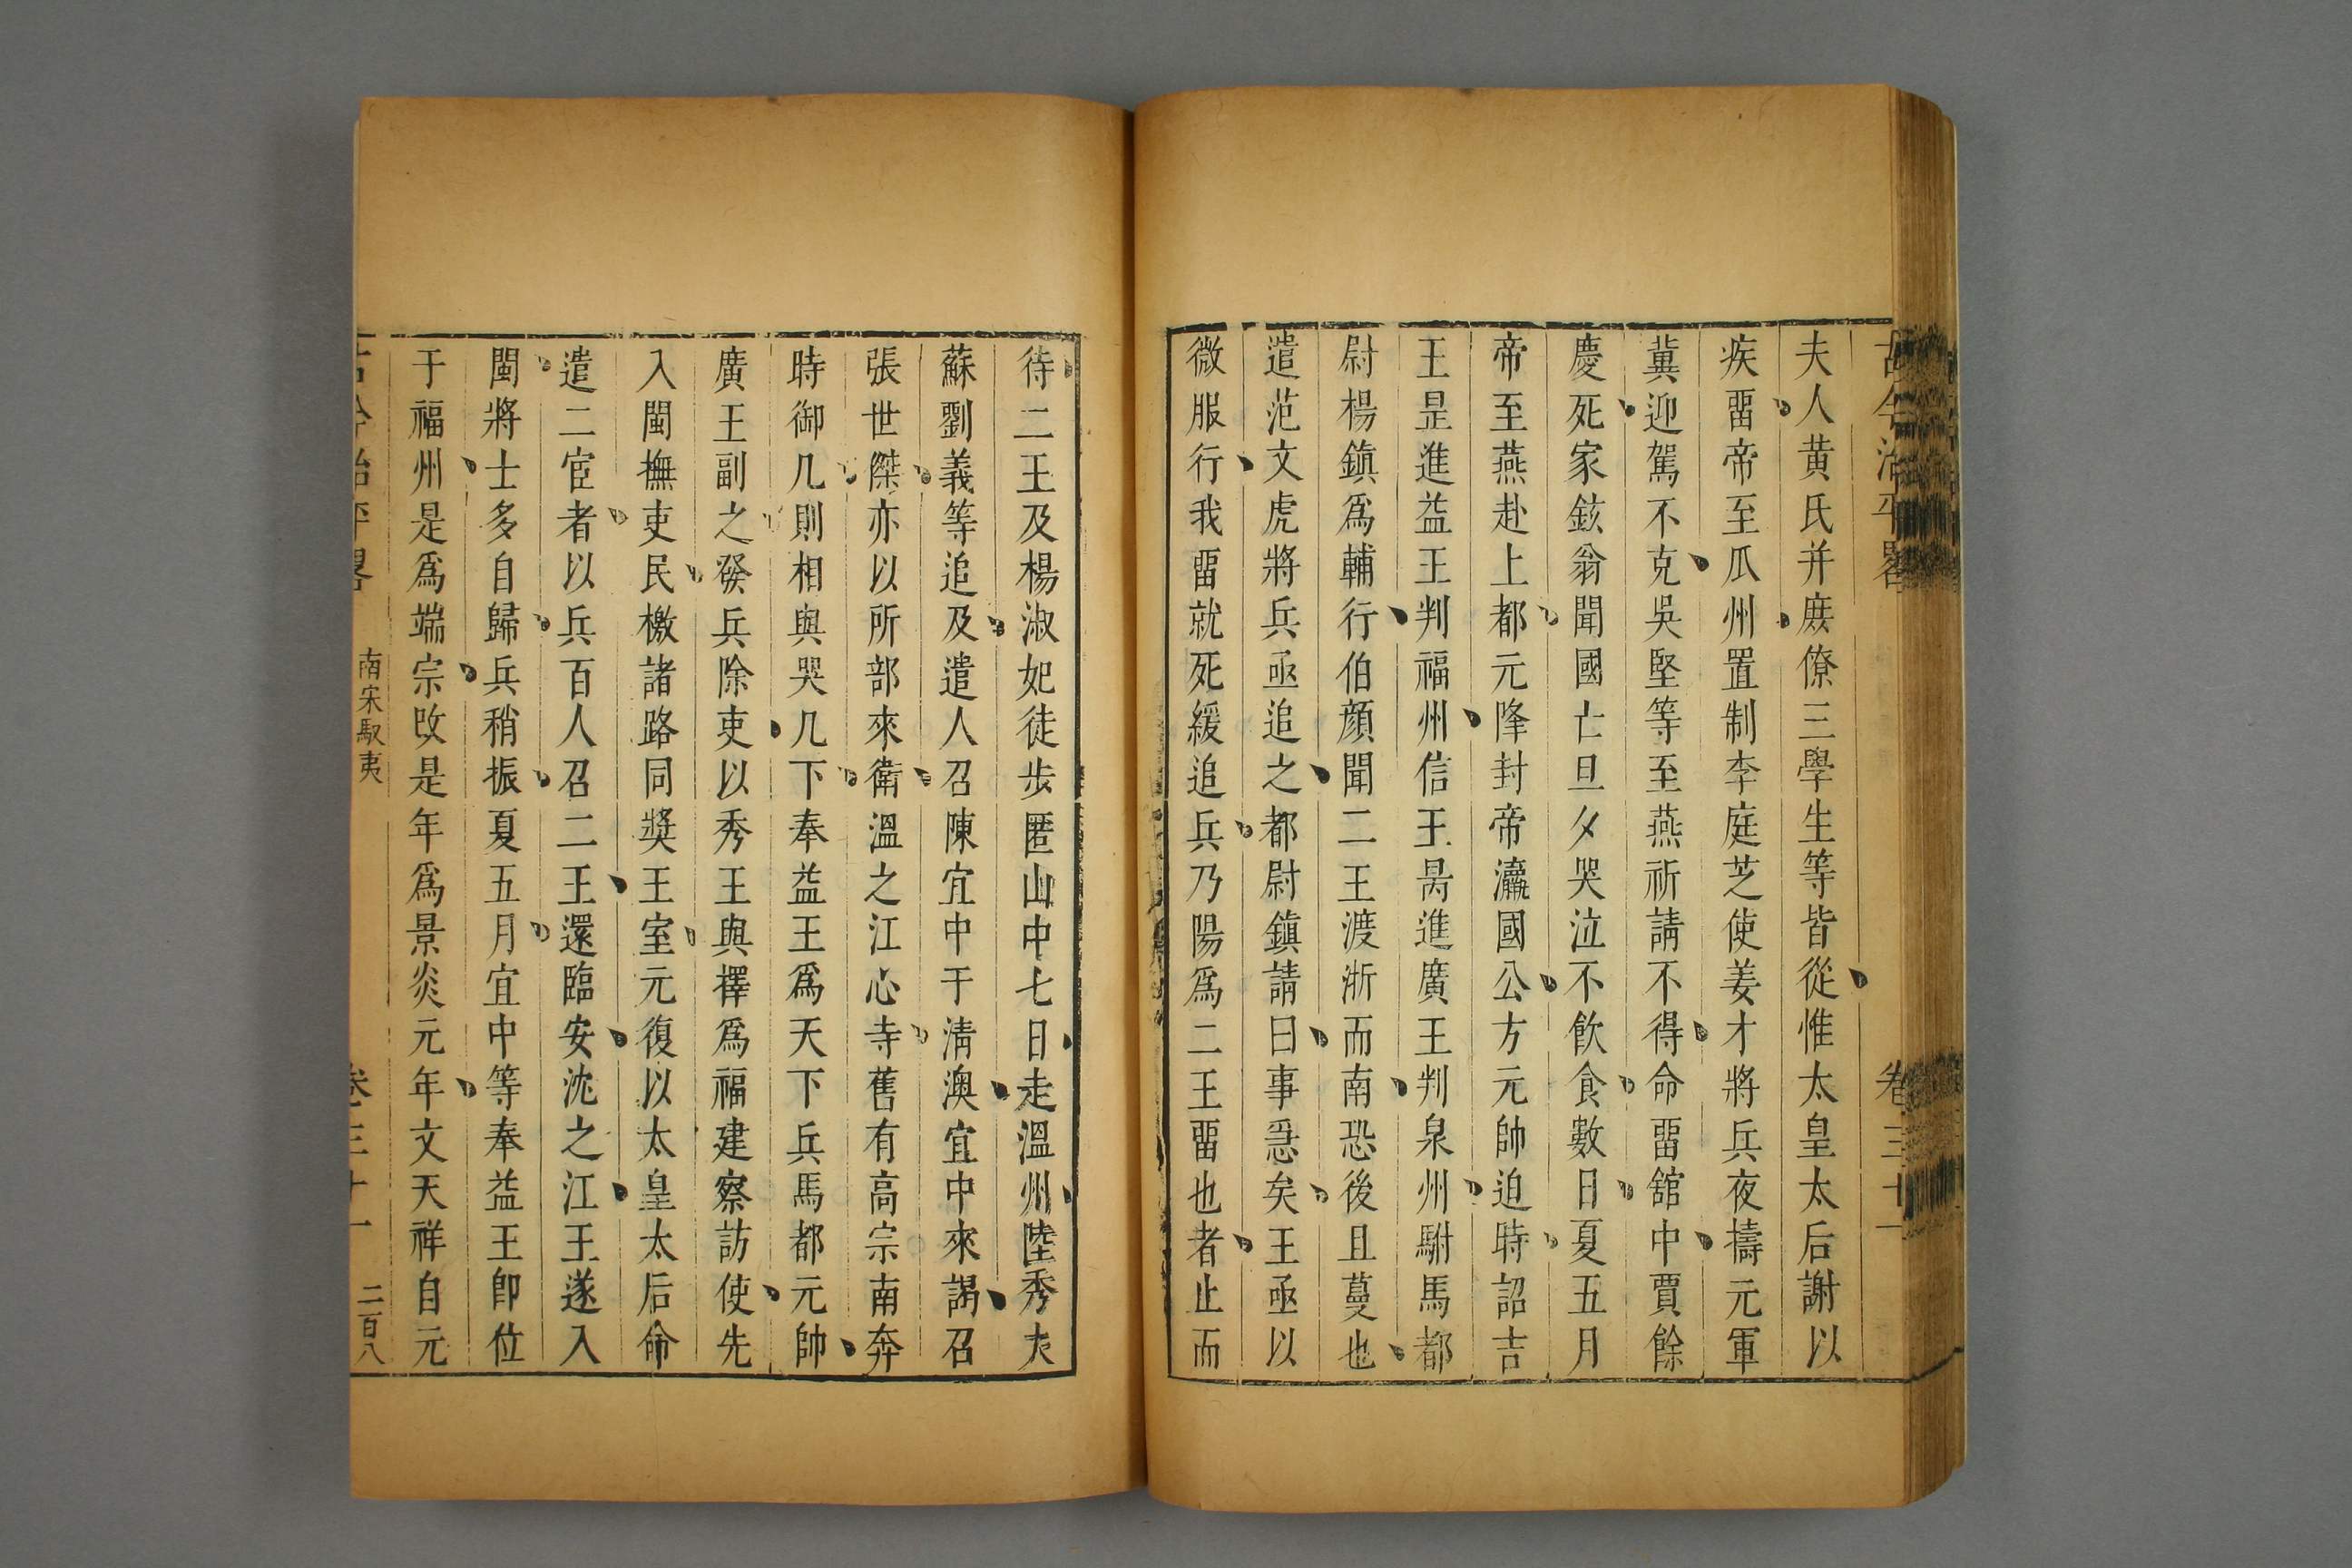 古今治平畧 卷三十一
夫人黄氏并庻僚三學生等皆從惟太皇太后謝以
疾畱帝至瓜州置制李庭芝使姜才將兵夜擣元軍
冀迎駕不克吳堅等至燕祈請不得命畱舘中賈餘
慶死家鉉翁聞國亡旦夕哭泣不飲食數日夏五月
帝至燕赴上都元降封帝瀛國公方元帥迫時詔吉
王昰進益王判福州信王昺進廣王判泉州駙馬都
尉楊鎮爲輔行伯顔聞二王渡浙而南恐後且蔓也
遣范文虎將兵亟追之都尉鎮請曰事急矣王亟以
微服行我畱就死緩追兵乃陽爲二王畱也者止而
待二王及楊淑妃徒步匿山中七日走溫州陸秀夫
蘇劉義等追及遣人召陳宜中于清澳宜中來謁召
張世傑亦以所部來衛溫之江心寺舊有高宗南奔
時御几則相與哭几下奉益王爲天下兵馬都元帥
廣王副之發兵除吏以秀王與擇爲福建察訪使先
入閩撫吏民檄諸路同奬王室元復以太皇太后命
遣二宦者以兵百人召二王還臨安沈之江王遂入
閩將士多自歸兵稍振夏五月宜中等奉益王卽位
于福州是爲端宗改是年爲景炎元年文天祥自元
古今治平畧 南宋馭夷 卷三十一 二百八